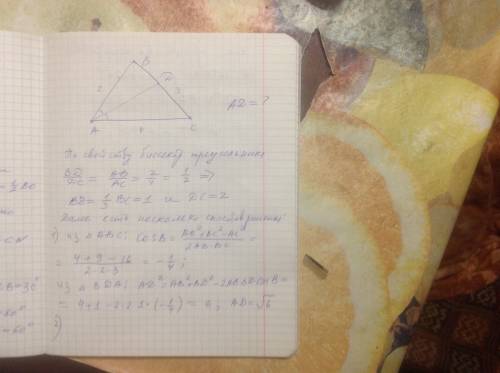 B
2
D
3
AD = ?
A
4
C
По свойству биссектр. треугольника
BD/DC = AB/AC = 2/4 = 1/2 ⇒
BD = 1/3 BC = 1 и DC = 2
Далее есть несколько
1) из △ABC: cosB = (AB² + BC² - AC²)/(2AB·BC) =
= (4+9-16)/(2·2·3) = -1/4;
из △BDA: AD² = AB² + BD² - 2AB·BD·cosB =
= 4+1-2·2·1·(-1/4) = 6; AD = √6
2)
= ½ BO
CN
B = 30°
= 60°
= 60°